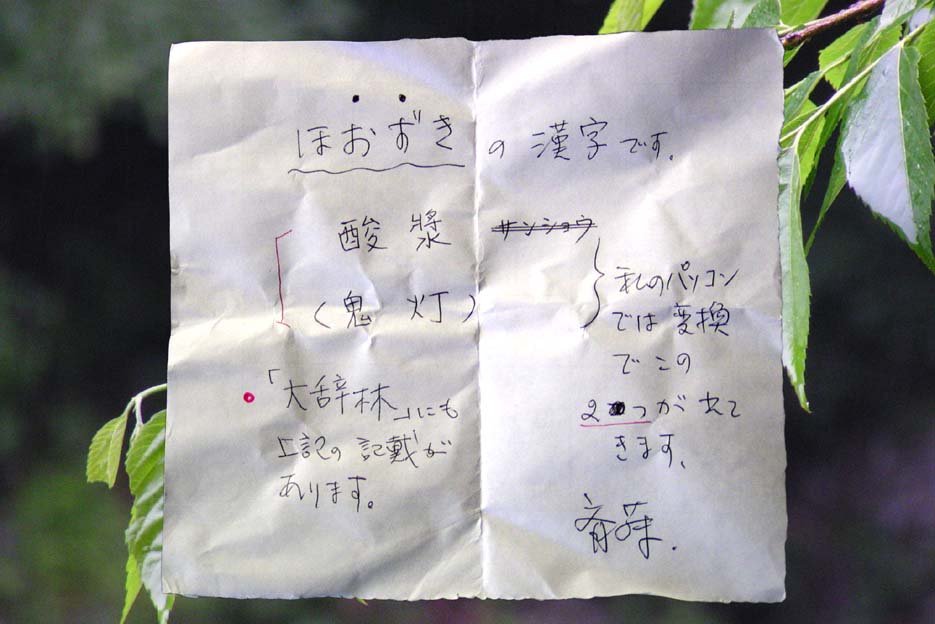 ほおずきの漢字です。
酸漿 サンショウ
(鬼灯)
私のパソコン
では変換
でこの
2つが出て
きます、
「大辞林」にも
上記の記載が
あります。
斉藤.